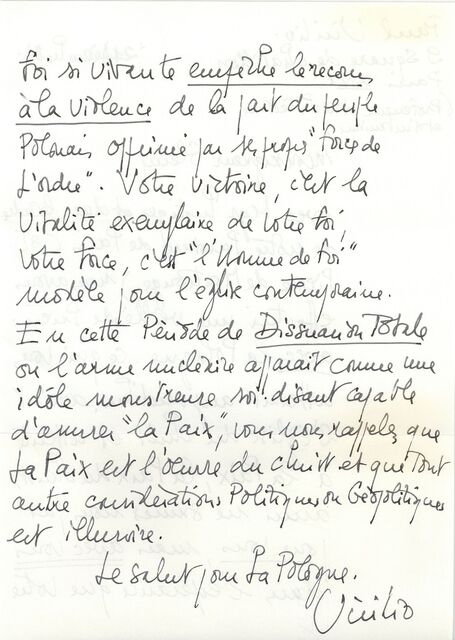 foi si vivante empêche le recours
à la violence de la part du peuple
Polonais opprimé par ses propres "forces de
l'ordre". Votre victoire, c'est la
vitalité exemplaire de votre foi,
votre force, c'est "l'Homme de foi"
modèle pour l'église contemporaine.
En cette Période de Dissuasion Totale
où l'arme nucléaire apparait comme une
idôle monstrueuse soi-disant capable
d'assurer "la Paix", vous nous rappelez que
La Paix est l'oeuvre du Christ et que tout
autre considérations Politiques ou Géopolitiques
est illusoire.
Le salut pour La Pologne.
Virilio